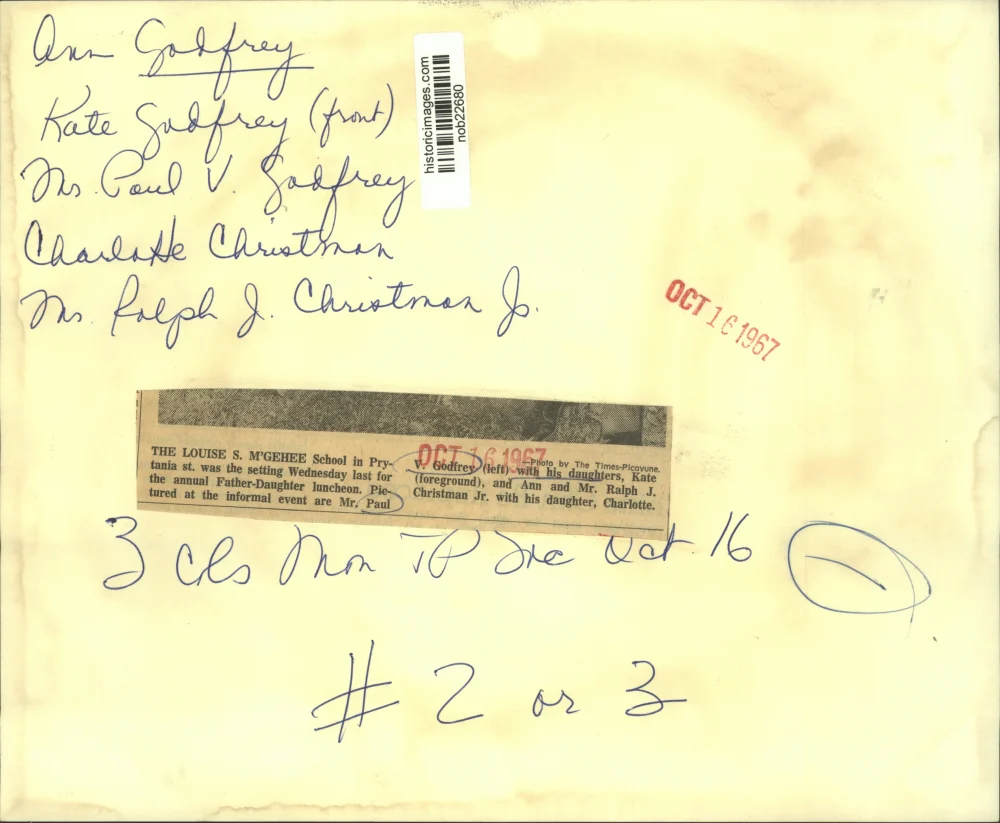 Ann Godfrey
Kate Godfrey (front)
Mr. Paul V. Godfrey
Charlotte Christman
Mr. Ralph J. Christman Jr.
historicimages.com
nob22680
OCT 16 1967
OCT 16 1967
—Photo by The Times-Picayune.
THE LOUISE S. M'GEHEE School in Pry-
tania st. was the setting Wednesday last for
the annual Father-Daughter luncheon. Pic-
tured at the informal event are Mr. Paul
V. Godfrey (left) with his daughters, Kate
(foreground), and Ann and Mr. Ralph J.
Christman Jr. with his daughter, Charlotte.
3 cols Mon TP Soc Oct 16
# 2 or 3